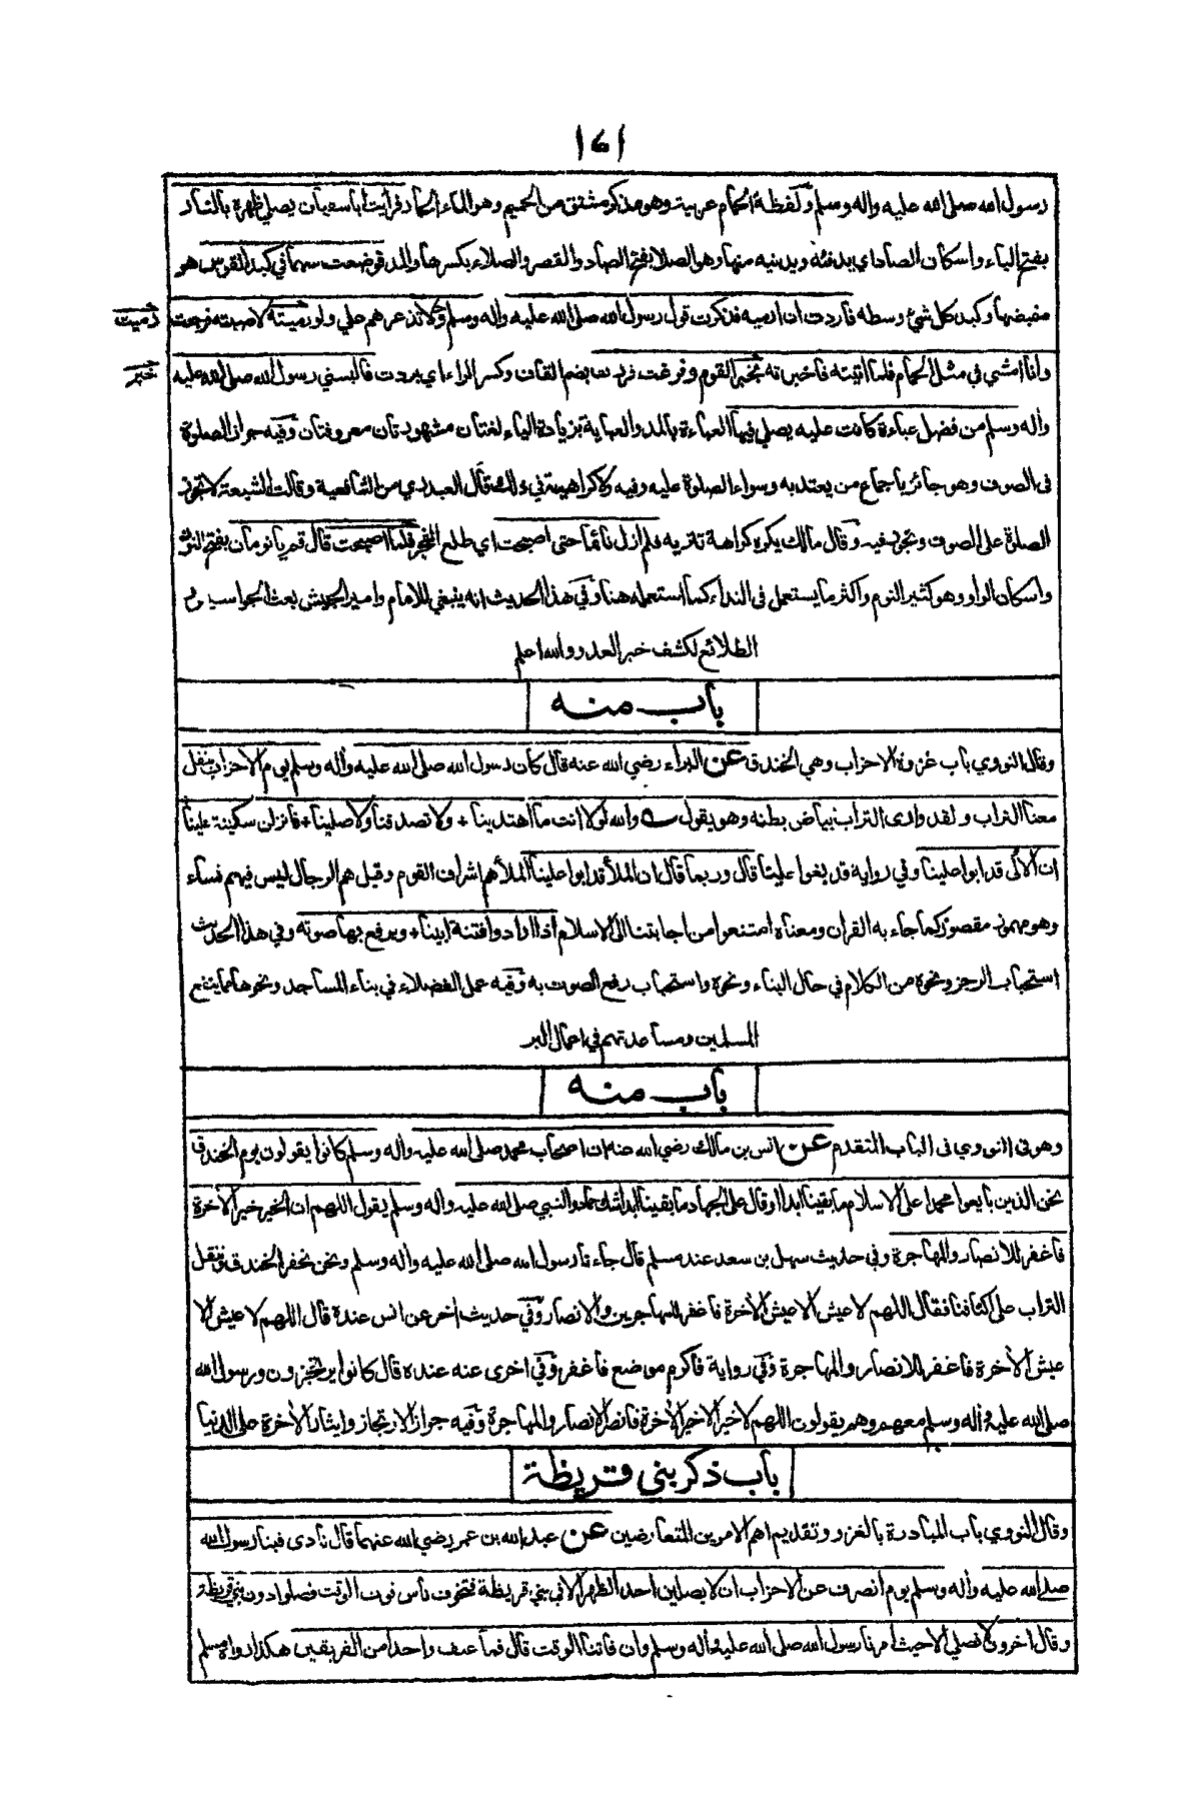 ١٦١
رسول الله صلى الله عليه واله وسلم ولفظة الحمام عربية وهو مذكر مشتق من الحميم وهو الماء الحار فرأيت اباسفيان يصلي ظهره بالنار
بفتح الياء واسكان الصاد اي يدفئه ويدنيه منها وهو الصلا بفتح الصاد والقصر والصلاء بكسرها والمد فوضعت سهما في كبد القوس هو
مقبضها وكبد كل شئ وسطه فاردت ان ارميه فذكرت قول رسول الله صلى الله عليه واله وسلم ولا تذعرهم علي ولو رميته لاصبته فرجعت
رميت
وانا امشي في مثل الحمام فلما اتيته فاخبرته بخبر القوم وفرغت قررت بضم القاف وكسر الراء اي بردت فالبسني رسول الله صلى الله عليه
خبر
واله وسلم من فضل عباءة كانت عليه يصلي فيها العباءة بالمد والعباية بزيادة الياء لغتان مشهورتان معروفتان وفيه جواز الصلوة
فى الصوف وهو جائز باجماع من يعتد به وسواء الصلوة عليه وفيه ولا كراهية في ذلك قال العبدري من الشافعية وقالت الشيعة لا تجوز
الصلوة على الصوف وتجوز فيه وقال مالك يكره كراهة تنزيه فلم ازل نائما حتى اصبحت اي طلع الفجر فلما اصبحت قال قم يا نومان بفتح النون
واسكان الواو وهو كثير النوم واكثر ما يستعمل فى النداء كما استعمله هنا وفي هذا الحديث انه ينبغي للامام وامير الجيش بعث الجواسيس و
الطلائع لكشف خبر العدو والله اعلم
باب منه
وقال النووي باب غزوة الاحزاب وهي الخندق عن البراء رضي الله عنه قال كان رسول الله صلى الله عليه واله وسلم يوم الاحزاب ينقل
معنا التراب ولقد وارى التراب بياض بطنه وهو يقول والله لولا انت ما اهتدينا + ولا تصدقنا ولا صلينا + فانزلن سكينة علينا
ان الألى قد ابوا علينا وفي رواية قد بغوا علينا قال وربما قال ان الملأ قد ابوا علينا الملأ هم اشراف القوم وقيل هم الرجال ليس فيهم نساء
وهو مهموز مقصور كما جاء به القران ومعناه امتنعوا من اجابتنا الى الاسلام اذا ارادوا فتنة ابينا + ويرفع بها صوته وفي هذا الحديث
استحباب الرجز ونحوه من الكلام في حال البناء ونحوه واستحباب رفع الصوت به وفيه عمل الفضلاء في بناء المساجد ونحوها مما ينتفع
المسلمين ومساعدتهم في اعمال البر
باب منه
وهو في النووي فى الباب المتقدم عن انس بن مالك رضي الله عنه ان اصحاب محمد صلى الله عليه واله وسلم كانوا يقولون يوم الخندق
نحن الذين بايعوا محمدا على الاسلام ما بقينا ابدا او قال على الجهاد ما بقينا ابدا شك حماد والنبي صلى الله عليه واله وسلم يقول اللهم ان الخير خير الأخرة
فاغفر للانصار والمهاجرة وفي حديث سهل بن سعد عند مسلم قال جاءنا رسول الله صلى الله عليه واله وسلم ونحن نحفر الخندق وننقل
التراب على اكتافنا فقال اللهم لا عيش الا عيش الأخرة فاغفر للمهاجرين والانصار وفي حديث اخر عن انس عنده قال اللهم لا عيش الا
عيش الأخرة فاغفر للانصار والمهاجرة وفي رواية فاكرم موضع فاغفر وفي اخرى عنه عنده قال كانوا يرتجزون ورسول الله
صلى الله عليه واله وسلم معهم وهم يقولون اللهم لا خير الا خير الأخرة فانصر الانصار والمهاجرة وفيه جواز الارتجاز وايثار الأخرة على الدنيا
باب ذكر بني قريظة
وقال النووي باب المبادرة بالغزو وتقديم اهم الامرين المتعارضين عن عبد الله بن عمر رضي الله عنهما قال نادى فينا رسول الله
صلى الله عليه واله وسلم يوم انصرف عن الاحزاب ان لا يصلين احد الظهر الا في بني قريظة فتخوف ناس فوت الوقت فصلوا دون بني قريظة
وقال اخرون لا نصلي الا حيث امرنا رسول الله صلى الله عليه واله وسلم وان فاتنا الوقت قال فما عنف واحدا من الفريقين هكذا رواه مسلم